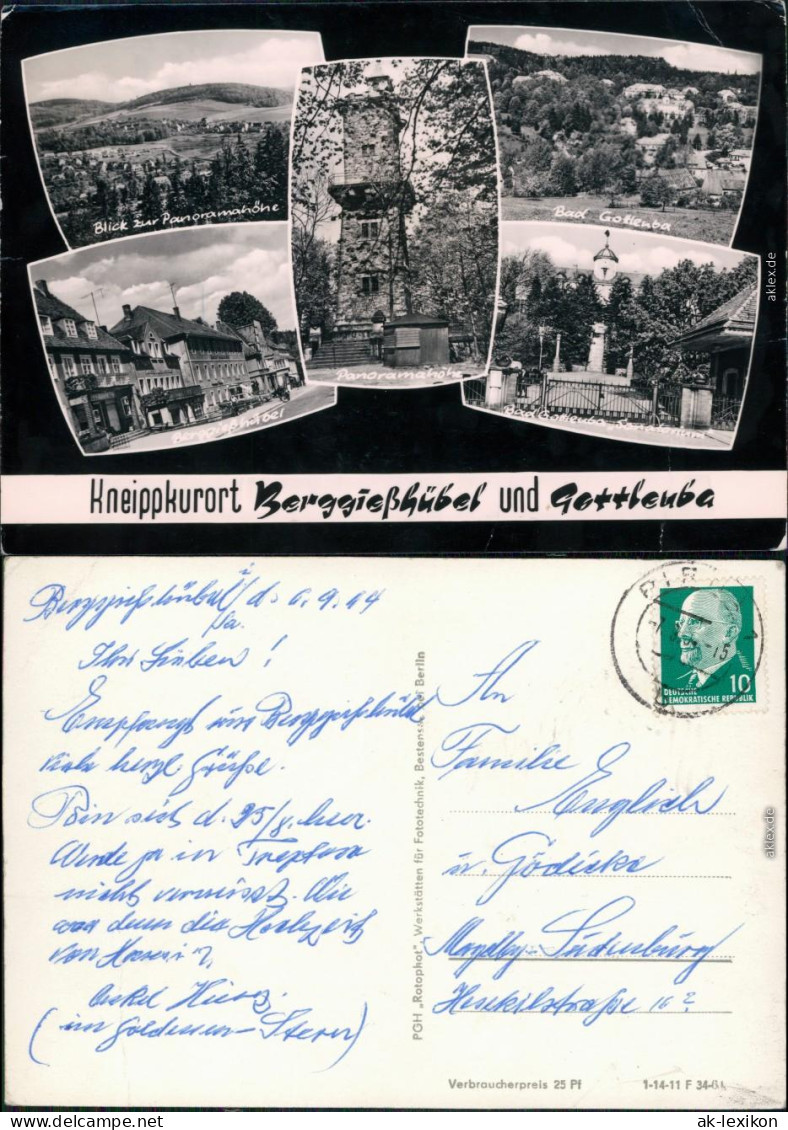 Blick zur Panoramahöhe
Bad Gottleuba
Panoramahöhe
Berggießhübel
Bad Gottleuba, Sanatorium
Kneippkurort Berggießhübel und Gottleuba
aklex.de
Berggießhübel i/Sa. d. 6.9.64
Ihr Lieben!
Empfangt aus Berggießhübel
viele herzl. Grüße.
Bin seit d. 25/8. hier.
Werde ja in Treptow
nicht vermisst. Wie
war denn die Hochzeit
von
Onkel
(im Goldenen Stern)
PGH „Rotophot", Werkstätten für Fototechnik, Bestensee bei Berlin
PIRNA
10
DEUTSCHE
DEMOKRATISCHE REPUBLIK
An
Familie
Englich
u. Gödicke
Magdbg-Sudenburg
Hesekielstraße
Verbraucherpreis 25 Pf
1-14-11 F 34-61
aklex.de
ak-lexikon